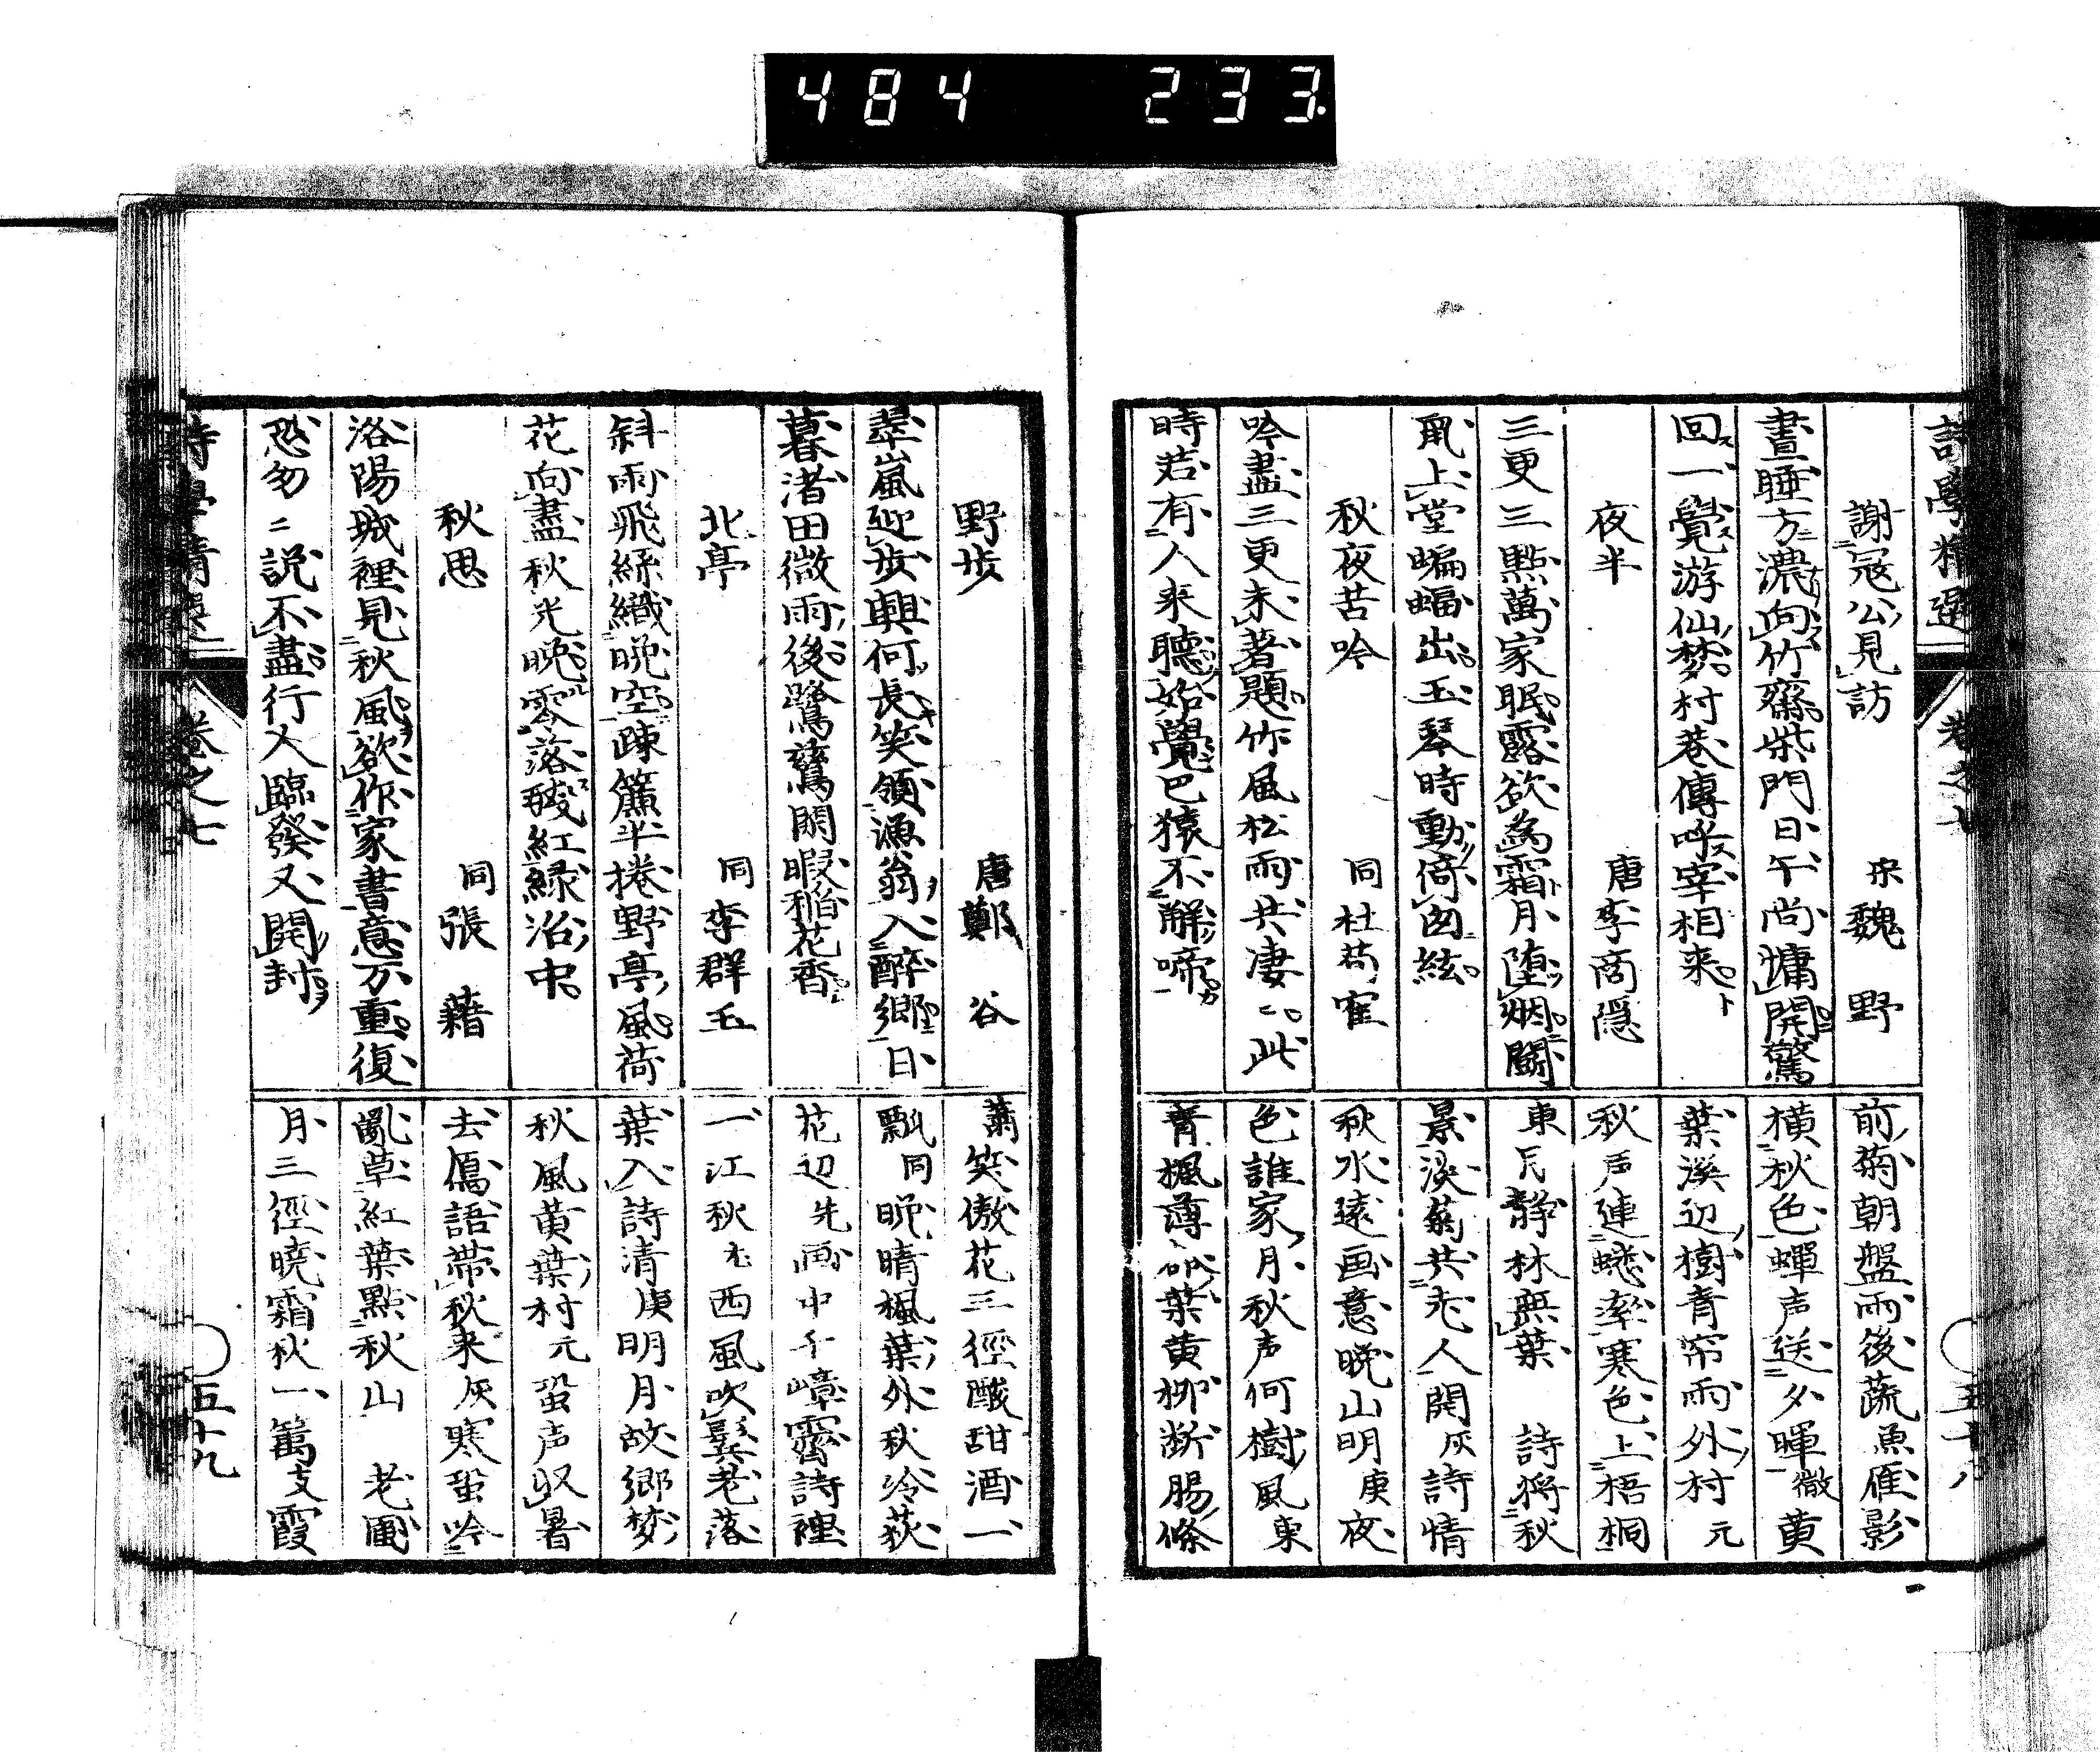 484 233
詩學精選 卷之七 五十八
謝寇公見訪 宋魏野
晝睡方濃向竹齋柴門日午尚慵開驚
回一覺游仙夢村巷傳呼宰相来
夜半 唐李商隠
三更三點萬家眠露欲為霜月堕烟鬪
鼠上堂蝙蝠出玉琴時動倚囱絃
秋夜苦吟 同杜荀寉
吟盡三更未著題竹風松雨共凄〻此
時若有人来聽始覺巴猿不解啼
前菊朝盤雨後蔬魚雁影
横秋色蟬声送夕暉微黄
葉溪辺樹青帘雨外村元
秋声連蟋蟀寒色上梧桐
東月静林無葉 詩将秋
景淡菊共老人開灰詩情
秋水遠画意晩山明庚夜
色誰家月秋声何樹風東
青楓薄葉黄柳断腸條
野歩 唐鄭谷
翠嵐迎歩興何長笑領漁翁入醉郷日
暮渚田微雨後鷺鶿閑暇稲花香
北亭 同李群玉
斜雨飛絲織晩空疎簾半捲野亭風荷
花向盡秋光晩零落残紅緑沼中
秋思 同張藉
洛陽城裡見秋風欲作家書意万重復
恐匆〻説不盡行人臨發又開封
蕭笑傲花三徑醎甜酒一
瓢同晩晴楓葉外秋冷荻
花辺先画中千嶂霽詩裡
一江秋尤西風吹鬂老落
葉入詩清庚明月故郷夢
秋風黄葉村元蛩声収暑
去鴈語帯秋来灰寒蛩吟
亂草紅葉點秋山 老圃
月三徑暁霜秋一篙支霞
詩學精選 卷之七 五十九